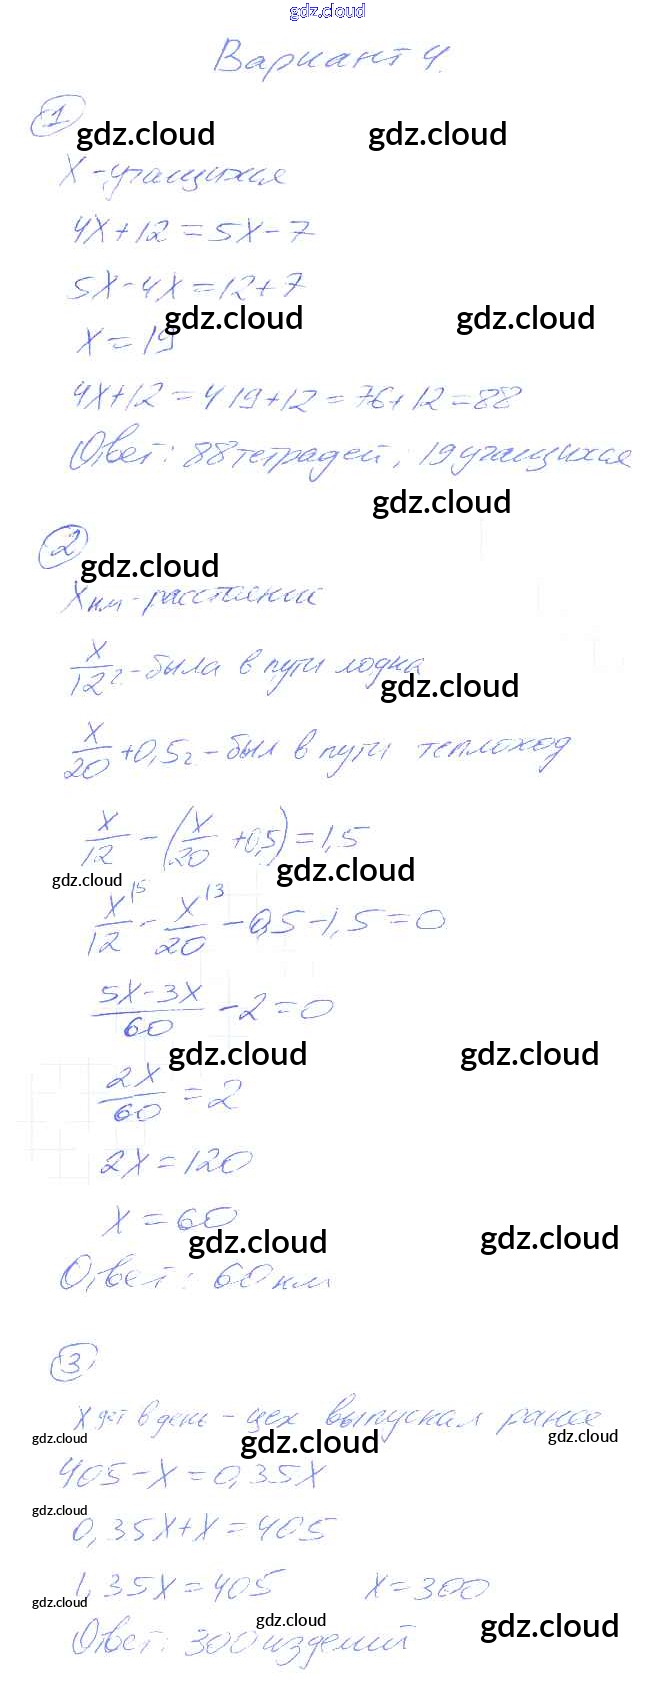 gdz.cloud
Вариант 4.
1
gdz.cloud gdz.cloud
X - учащихся
4X+12=5X-7
5X-4X=12+7
gdz.cloud gdz.cloud
X=19
4X+12=4 19+12=76+12=88
Ответ: 88 тетрадей; 19 учащихся
gdz.cloud
2
gdz.cloud
X км - расстояний
X/12 ч - была в пути лодка
gdz.cloud
X/20 +0,5 ч - был в пути теплоход
X/12 - (X/20 +0,5)=1,5
gdz.cloud gdz.cloud
X/12 |5 - X/20 |3 -0,5-1,5=0
5X-3X/60 -2=0
gdz.cloud gdz.cloud
2X/60 =2
2X=120
X=60
gdz.cloud gdz.cloud
Ответ: 60 км
3
X дет в день - цех выпускал ранее
gdz.cloud gdz.cloud gdz.cloud
405-X=0,35X
gdz.cloud
0,35X+X=405
1,35X=405 X=300
gdz.cloud gdz.cloud gdz.cloud
Ответ: 300 изделий